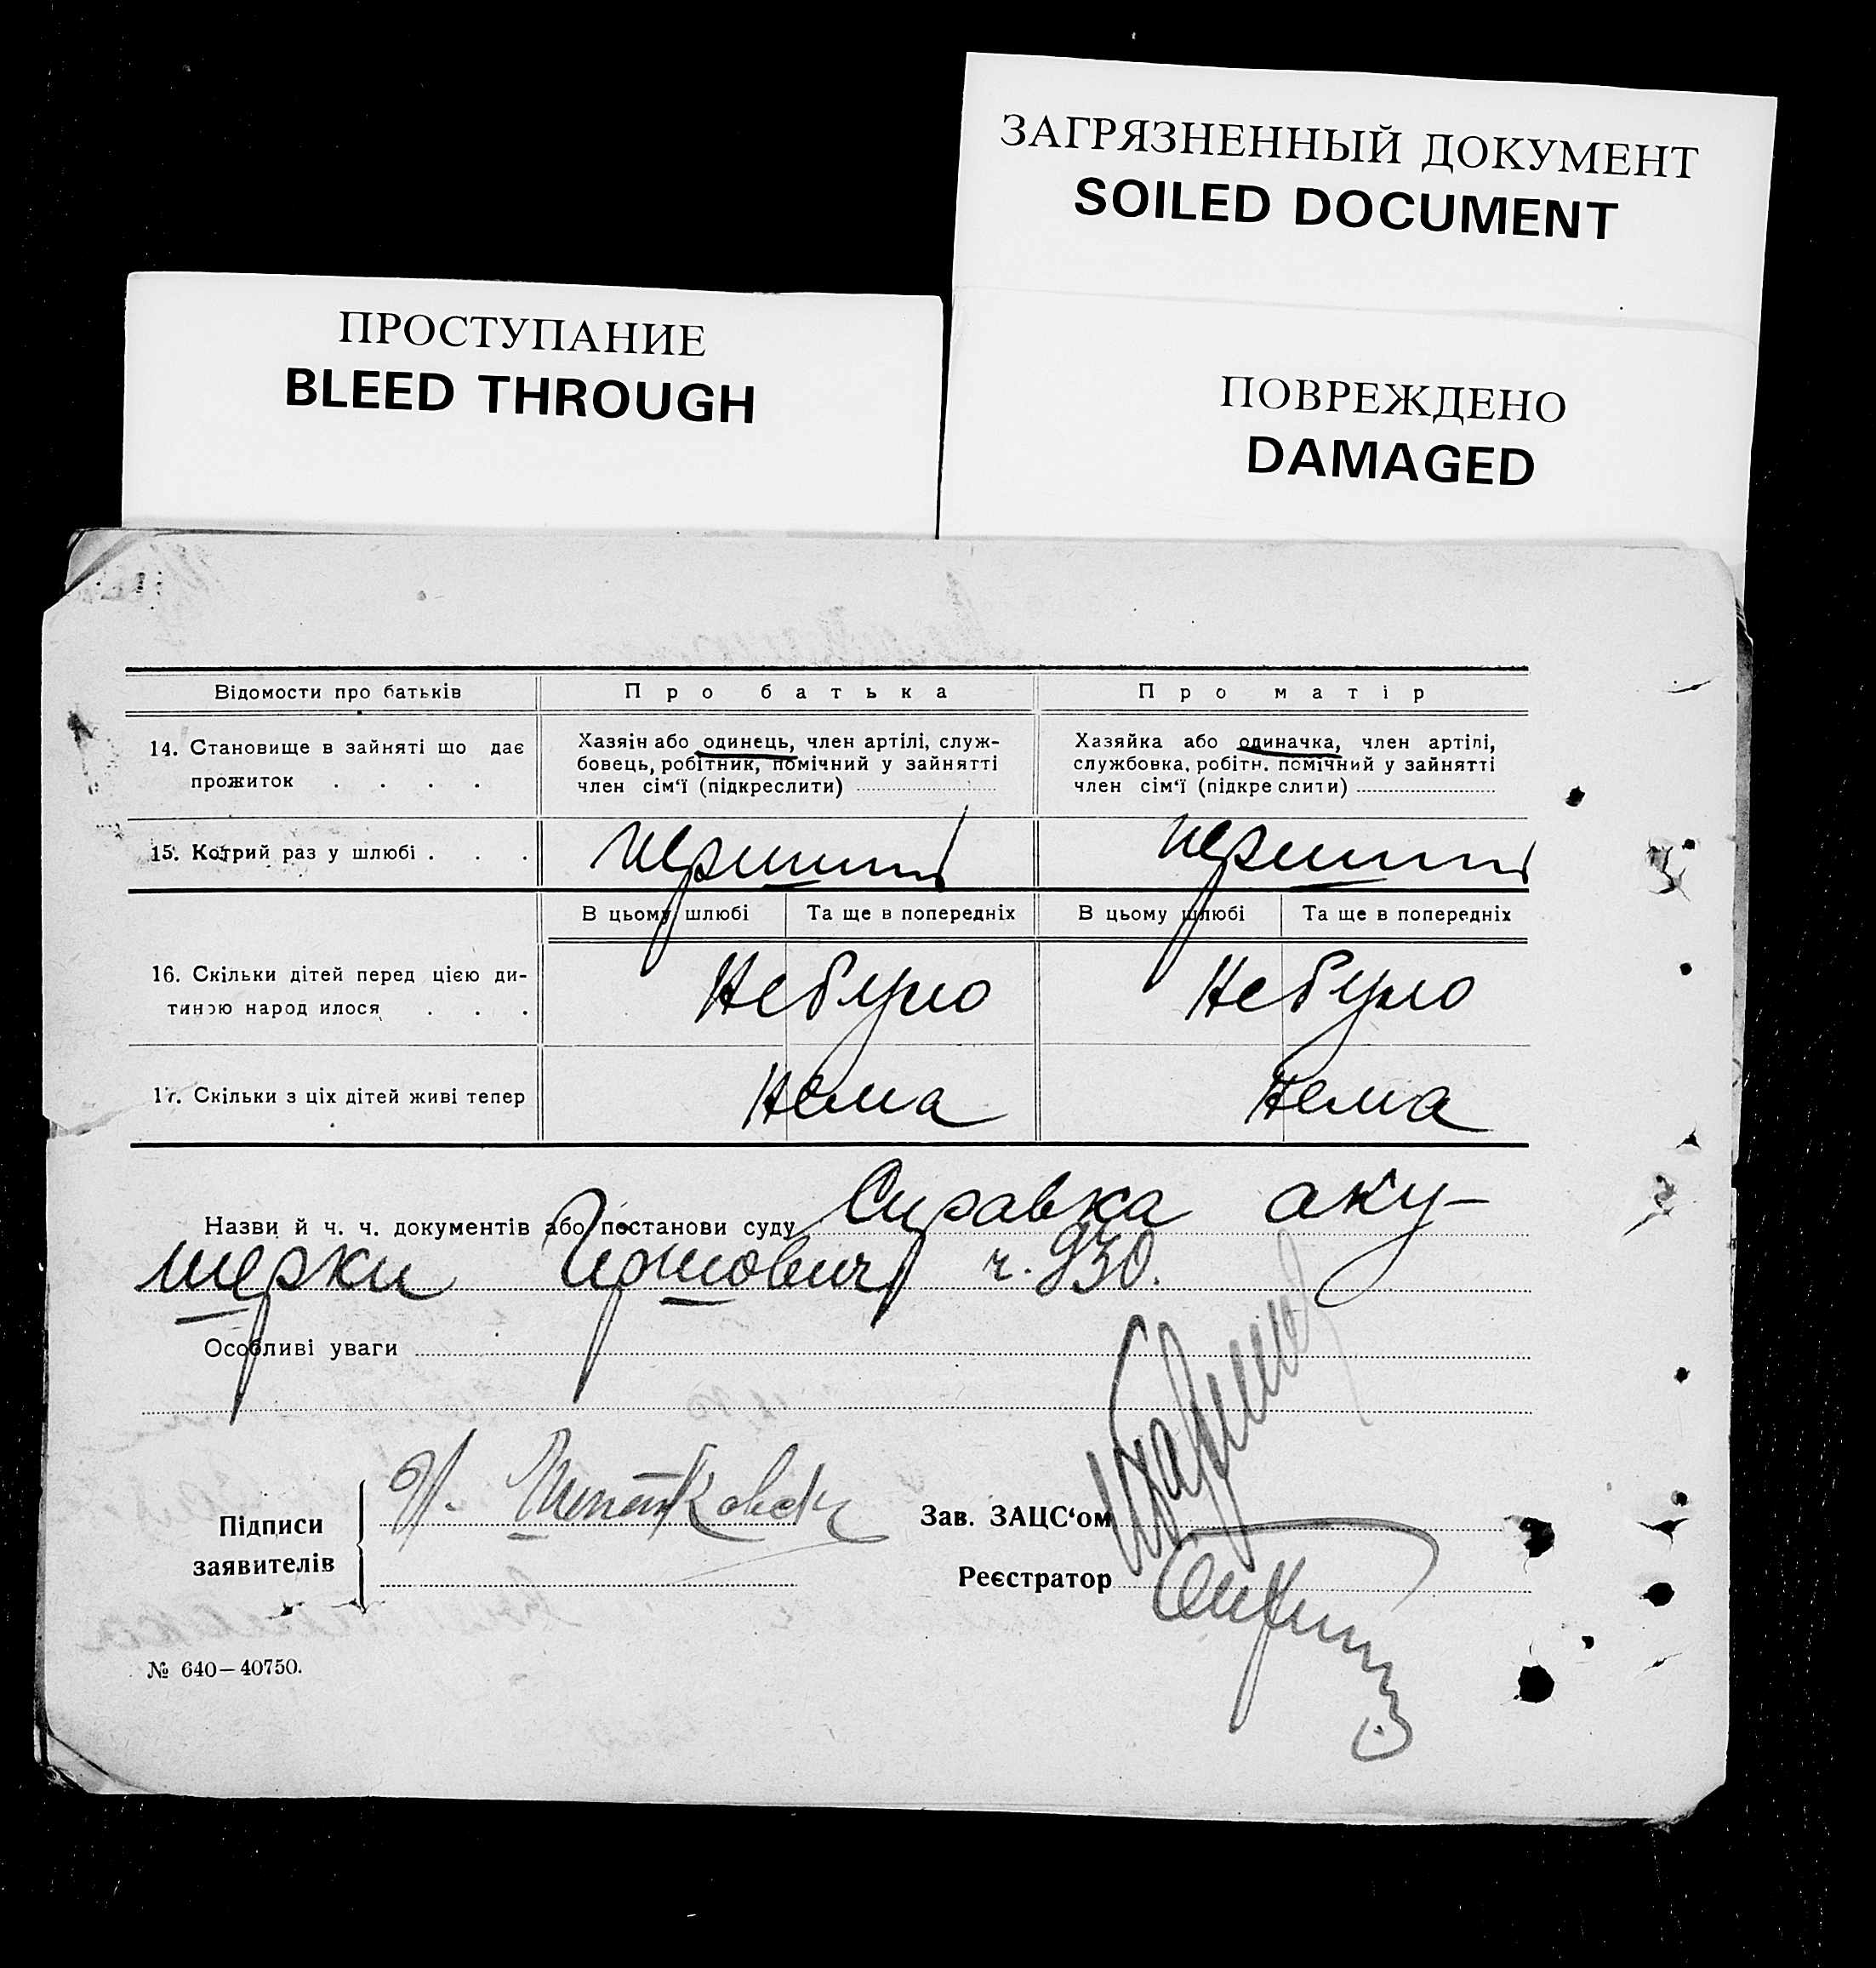 ЗАГРЯЗНЕННЫЙ ДОКУМЕНТ
SOILED DOCUMENT
ПРОСТУПАНИЕ
BLEED THROUGH
ПОВРЕЖДЕНО
DAMAGED
Відомости про батьків
Про батька
Про матір
14. Становище в зайняті що дає
прожиток . . . .
Хазяін або одинець, член артілі, служ-
бовець, робітник, помічний у зайнятті
член сім‘ї (підкреслити)
Хазяйка або одиначка, член артілі,
службовка, робітн. помічний у зайнятті
член сім‘ї (підкреслити)
15. Котрий раз у шлюбі . . .
перший
перший
В цьому шлюбі
Та ще в попередніх
В цьому шлюбі
Та ще в попередніх
16. Скільки дітей перед цією ди-
тиною народ илося . . .
Не було
Не було
17. Скільки з ціх дітей живі тепер
Нема
Нема
Назви й ч. ч. документів або постанови суду Справка аку-
шерки ч. 930.
Особливі уваги
Підписи
заявителів
Зав. ЗАЦС‘ом
Реєстратор
№ 640—40750.